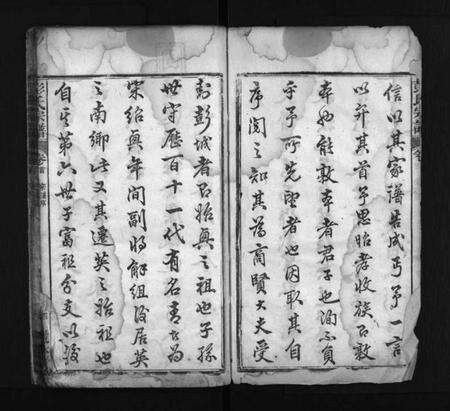 信以其家譜告成丐予一言
以弁其首予思昭孝收族以敦
本也能敦本者君子也洵不負
乎予所先望者也因取其自
序閱之知其為商賢大夫受
彭彭城者乃始真之祖也子孫
世守歷百十一代有名青公為
宋紹興年間副將解組後居英
之南鄉此又其遷英之始祖也
自生第六世子富祖分支以後